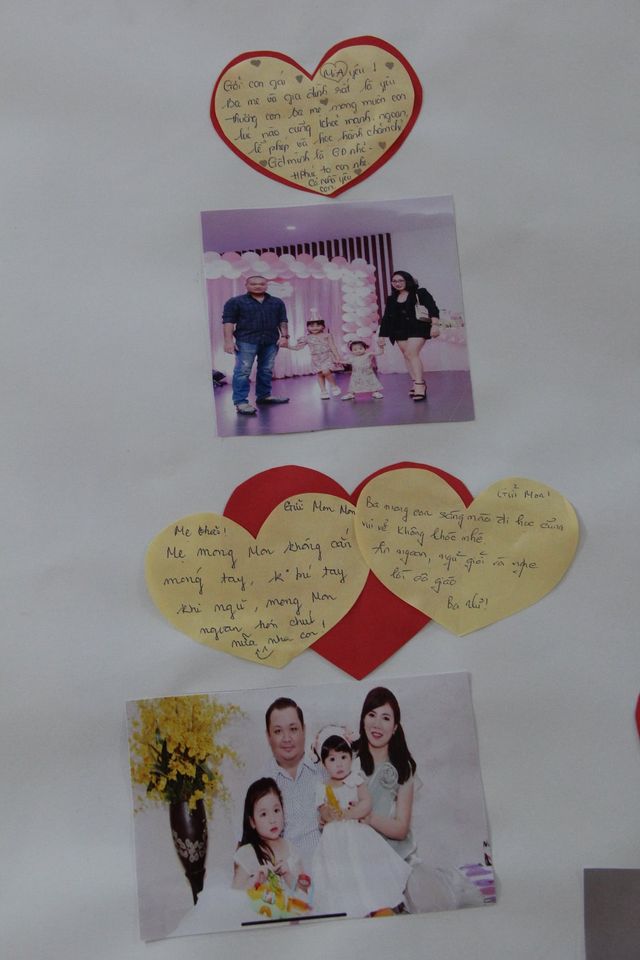 Gởi con gái MiA yêu !
Ba mẹ và gia đình rất là yêu
thương con. Ba mẹ mong muốn con
lúc nào cũng khoẻ mạnh, ngoan,
lễ phép và học hành chăm chỉ
to con nhé
Cả nhà yêu
con
Gửi Mon Mon
Mẹ Thảo!
Mẹ mong Mon không cắn
móng tay, k bú tay
khi ngủ, mong Mon
ngoan hơn chút
nữa nha con!
Gửi Mon!
Ba mong con sáng nào đi học cũng
vui vẻ không khóc nhé
Ăn ngoan, ngủ giỏi và nghe
lời cô giáo
Ba